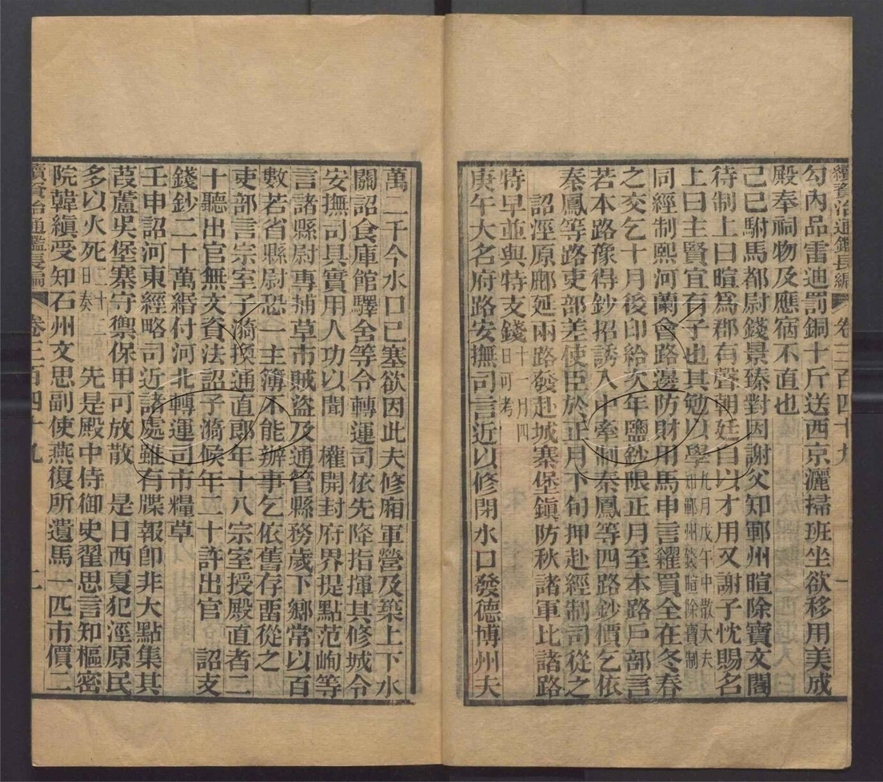 續資治通鑑長編　卷三百四十九　一
勾內品雷迪罰銅十斤送西京灑掃班坐欲移用美成
殿奉祠物及應宿不直也
己巳駙馬都尉錢景臻對因謝父知鄆州暄除寶文閣
待制上曰暄爲郡有聲朝廷自以才用又謝子忱賜名
上曰主賢宜有子也其勉以學九月戊午中散大夫知鄆州錢暄除寶制
同經制熙河蘭會路邊防財用馬申言糴買全在冬春
之交乞十月後印給次年鹽鈔限正月至本路戶部言
若本路豫得鈔招誘入中牽制秦鳳等四路鈔價乞依
秦鳳等路吏部差使臣於正月下旬押赴經制司從之
詔涇原鄜延兩路發赴城寨堡鎭防秋諸軍比諸路
特早並與特支錢十一月四日可考
庚午大名府路安撫司言近以修閉水口發德博州夫
萬二千今水口已塞欲因此夫修廂軍營及築上下水
關詔倉庫館驛舍等令轉運司依先降指揮其修城令
安撫司具實用人功以聞　權開封府界提點范峋等
言諸縣尉專捕草市賊盜及通管縣務歲下鄉常以百
數若省縣尉恐一主簿不能辦事乞依舊存畱從之
吏部言宗室子漪換通直郎年十八宗室授殿直者二
十聽出官無文資法詔子漪候年二十許出官　詔支
錢鈔二十萬緡付河北轉運司市糧草
壬申詔河東經略司近諸處雖有牒報卽非大點集其
葭蘆吳堡寨守禦保甲可放散　是日西夏犯涇原民
多以火死二十日奏　先是殿中侍御史翟思言知樞密
院韓縝受知石州文思副使燕復所遺馬一匹市價二
續資治通鑑長編　卷三百四十九　二